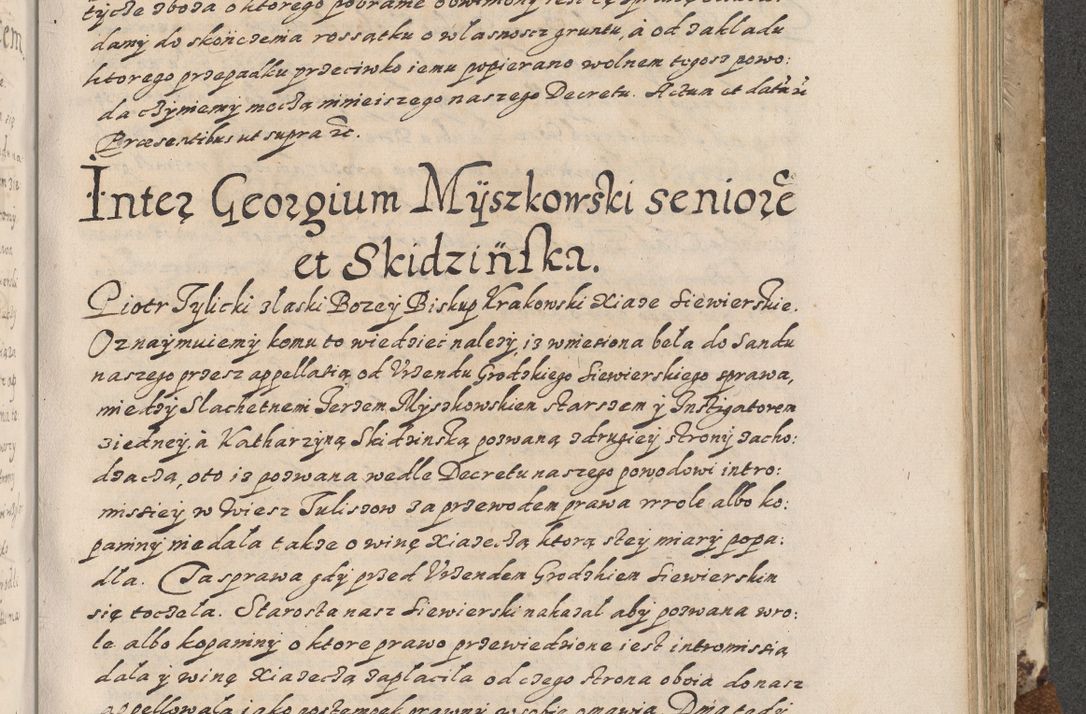 damy do skończenia rossątku o własnoscz gruntu, à od zakladu
ktorego przepadku przeciwko iemu popierano wolnem tegosz powo:
da czÿniemy moczą ninieiszego naszego Decretu. Actum et datũ ꝛc̃
Præsentibus ut supra ꝛc̃.
Inter Georgium Mÿszkowski seniorẽ
et Skidzińſka.
Piotr Tylicki z laski Bozeÿ Biskup Krakowski Xiaze Siewierskie.
Oznaÿmuiemy komu to wiedzieć nalezy, iz wniesiona beła do Sandu
naszego przesz appellatią od Vrzendu Grodzkiego Siewierskiego sprawa,
miedzÿ Slachetnem Jerzem Mÿszkowskiem starszem ÿ Instigatorem
z iedneÿ, à Katharzÿną Skidzinską pozwaną z drugieÿ strony zacho:
dzacza, oto iz pozwana wedle Decretu naszego powodowi intro:
missieÿ w Wiesz Tuliszow za przewodem prawa w role albo ko:
paniny nie dala takze o winę Xiazeczą ktorą s teÿ miarÿ popa:
dla. Ta sprawa gdÿ przed Vrzendem Grodzkiem Siewierskim
się toczela. Starosta nasz Siewierski nakazal aby pozwana w ro:
le albo kopaniny o ktore prawo przewiedzione iest intromissią
dala ÿ winę Xiazeczą zaplacila od czego strona oboia do nasz
appellowala iako postempek prawny w sobie omawia. Dnia tedÿ